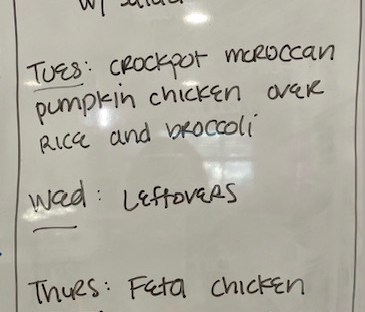 w/ salad
Tues: crockpot moroccan
pumpkin chicken over
rice and broccoli
Wed: Leftovers
Thurs: Feta chicken